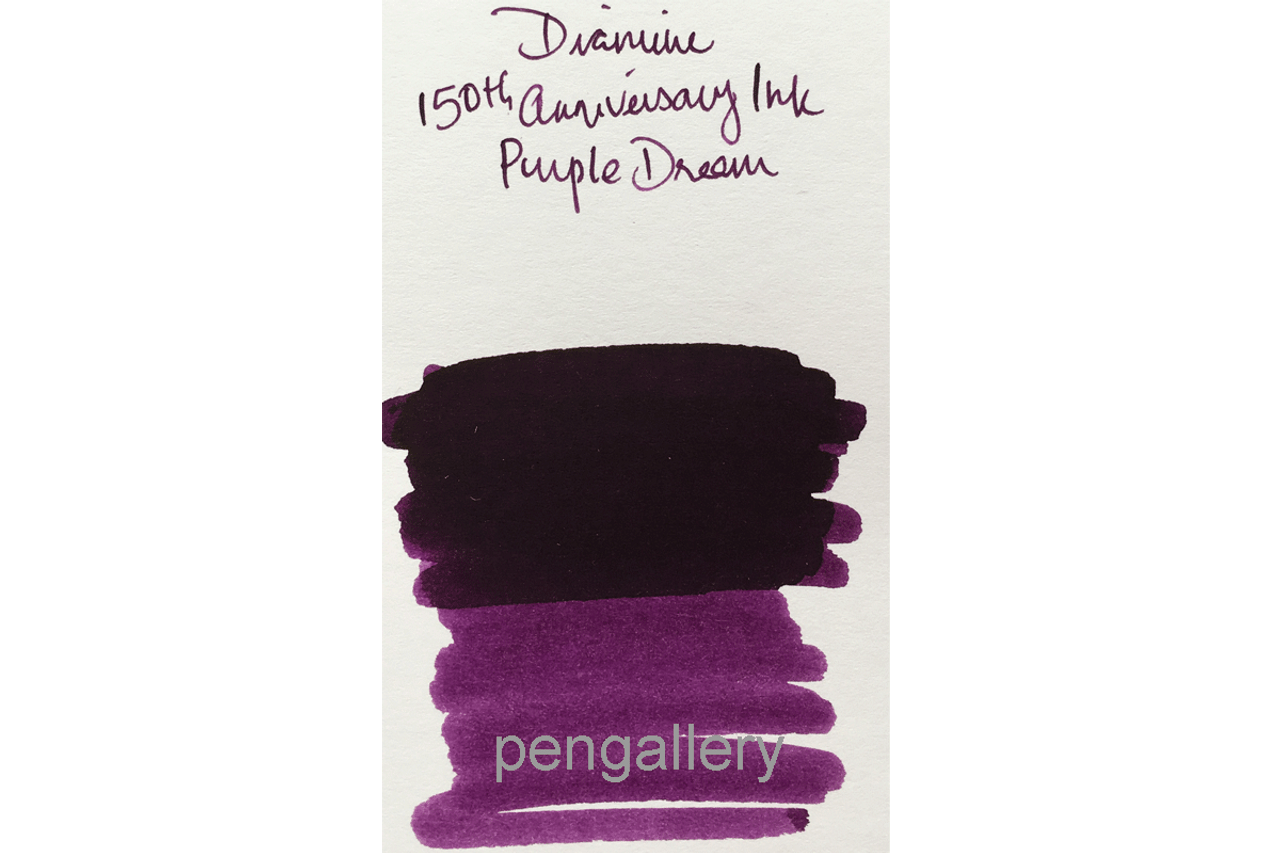 Diamine
150th Anniversary Ink
Purple Dream
pengallery